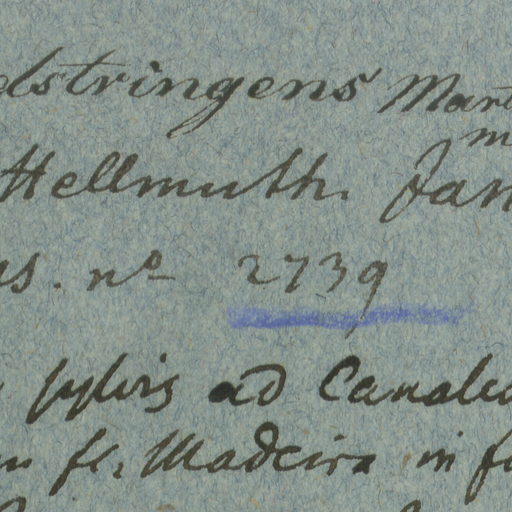 dstringens Mart
m
Hellmuth. Jan
as. nº 2739
sylvis ad Canale
fl. Madeira in